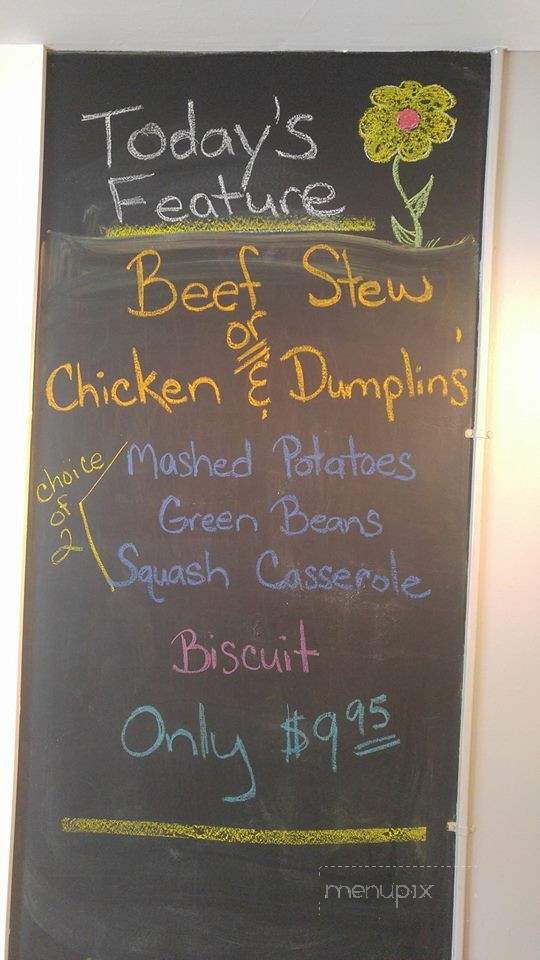 Today's
Feature
Beef Stew
or
Chicken & Dumplin's
choice
of
2
Mashed Potatoes
Green Beans
Squash Casserole
Biscuit
Only $9 95
menupix